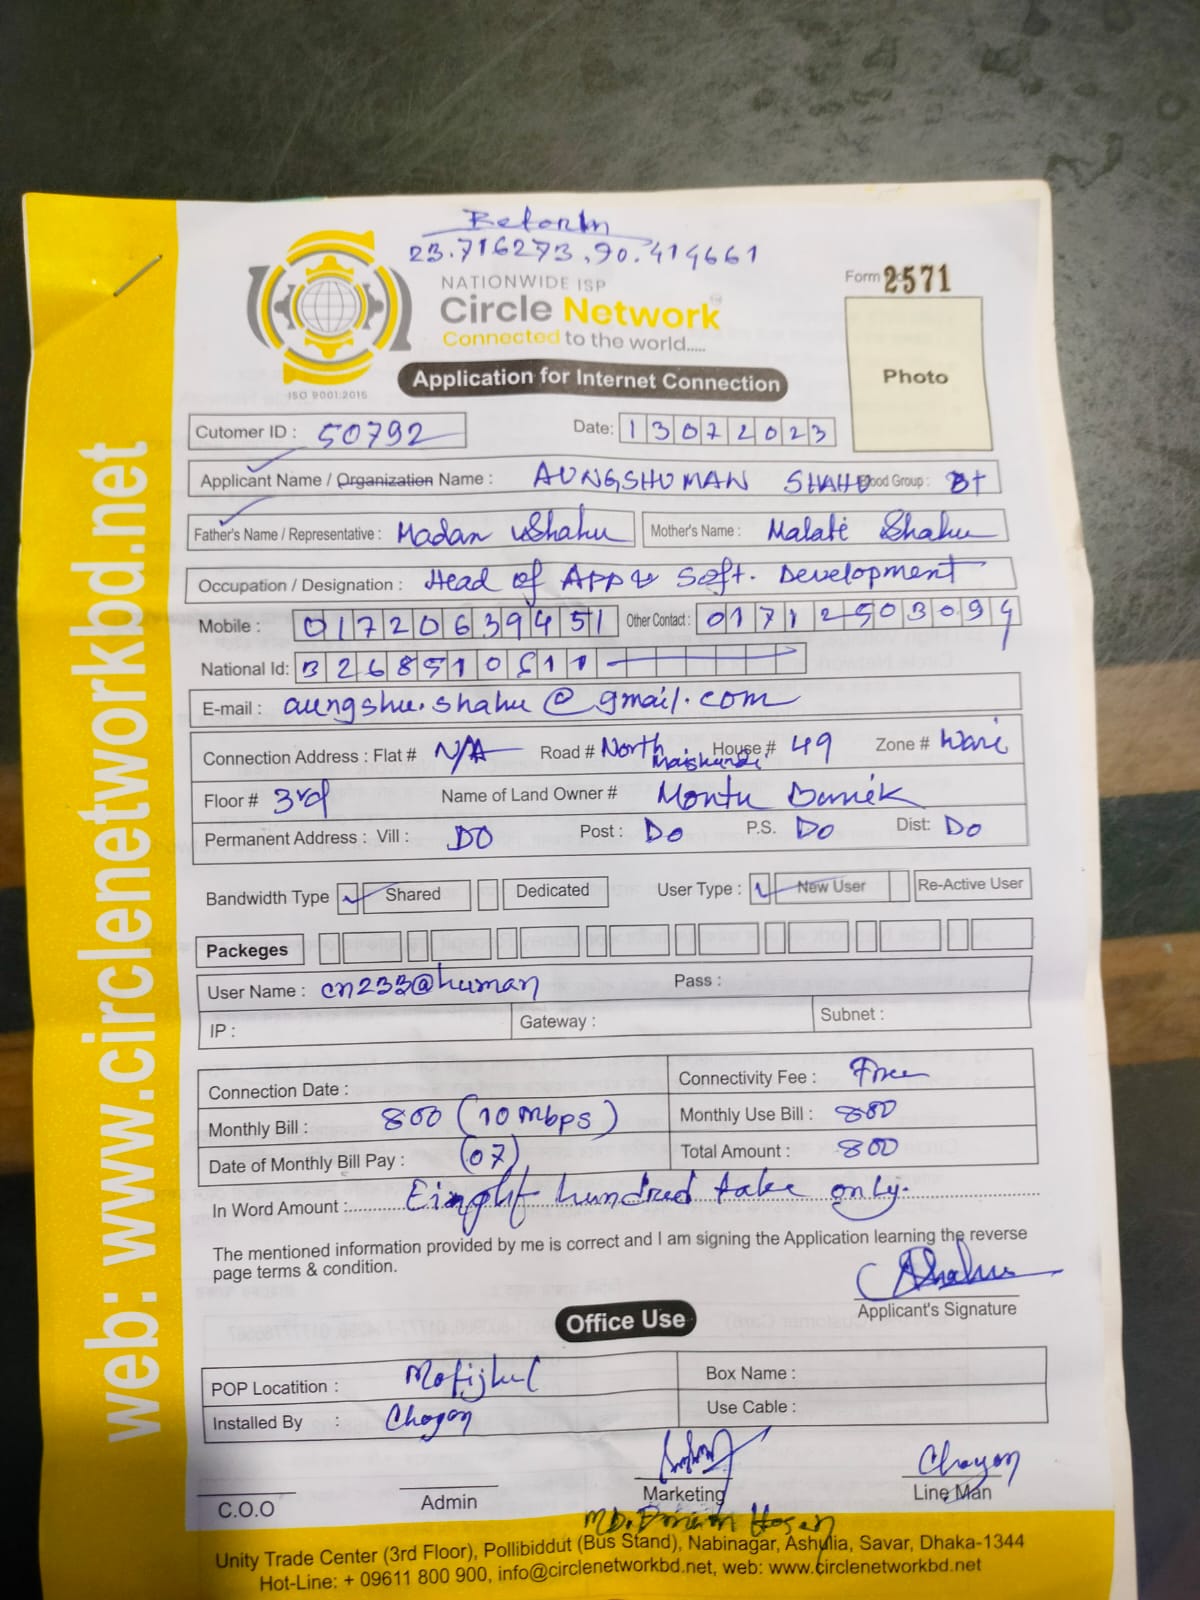 23.716273, 90.414661
NATIONWIDE ISP
Circle Network
Connected to the world.....
ISO 9001:2015
Form 2571
Photo
Application for Internet Connection
Cutomer ID : 50792
Date: 13072023
Applicant Name / Organization Name : AUNGSHUMAN SHAHU Blood Group : B+
Father's Name / Representative : Madan Shahu Mother's Name : Malati Shahu
Occupation / Designation : Head of App & Soft. Development
Mobile : 01720639451 Other Contact : 01712503094
National Id:
E-mail : aungshu.shahu@gmail.com
Connection Address : Flat # N/A Road # North House # 49 Zone # Wari
Floor # 3rd Name of Land Owner # Montu
Permanent Address : Vill : DO Post : Do P.S. Do Dist: Do
Bandwidth Type Shared Dedicated User Type : New User Re-Active User
Packeges
User Name : cn233@human Pass :
IP : Gateway : Subnet :
Connection Date : Connectivity Fee : Free
Monthly Bill : 800 (10 mbps) Monthly Use Bill : 800
Date of Monthly Bill Pay : (07) Total Amount : 800
In Word Amount : hundred take only.
The mentioned information provided by me is correct and I am signing the Application learning the reverse
page terms & condition.
Shahu
Applicant's Signature
Office Use
POP Locatition : Box Name :
Installed By : Chayan Use Cable :
Chayan
C.O.O Admin Marketing Line Man
Unity Trade Center (3rd Floor), Pollibiddut (Bus Stand), Nabinagar, Ashulia, Savar, Dhaka-1344
Hot-Line: + 09611 800 900, info@circlenetworkbd.net, web: www.circlenetworkbd.net
web: www.circlenetworkbd.net